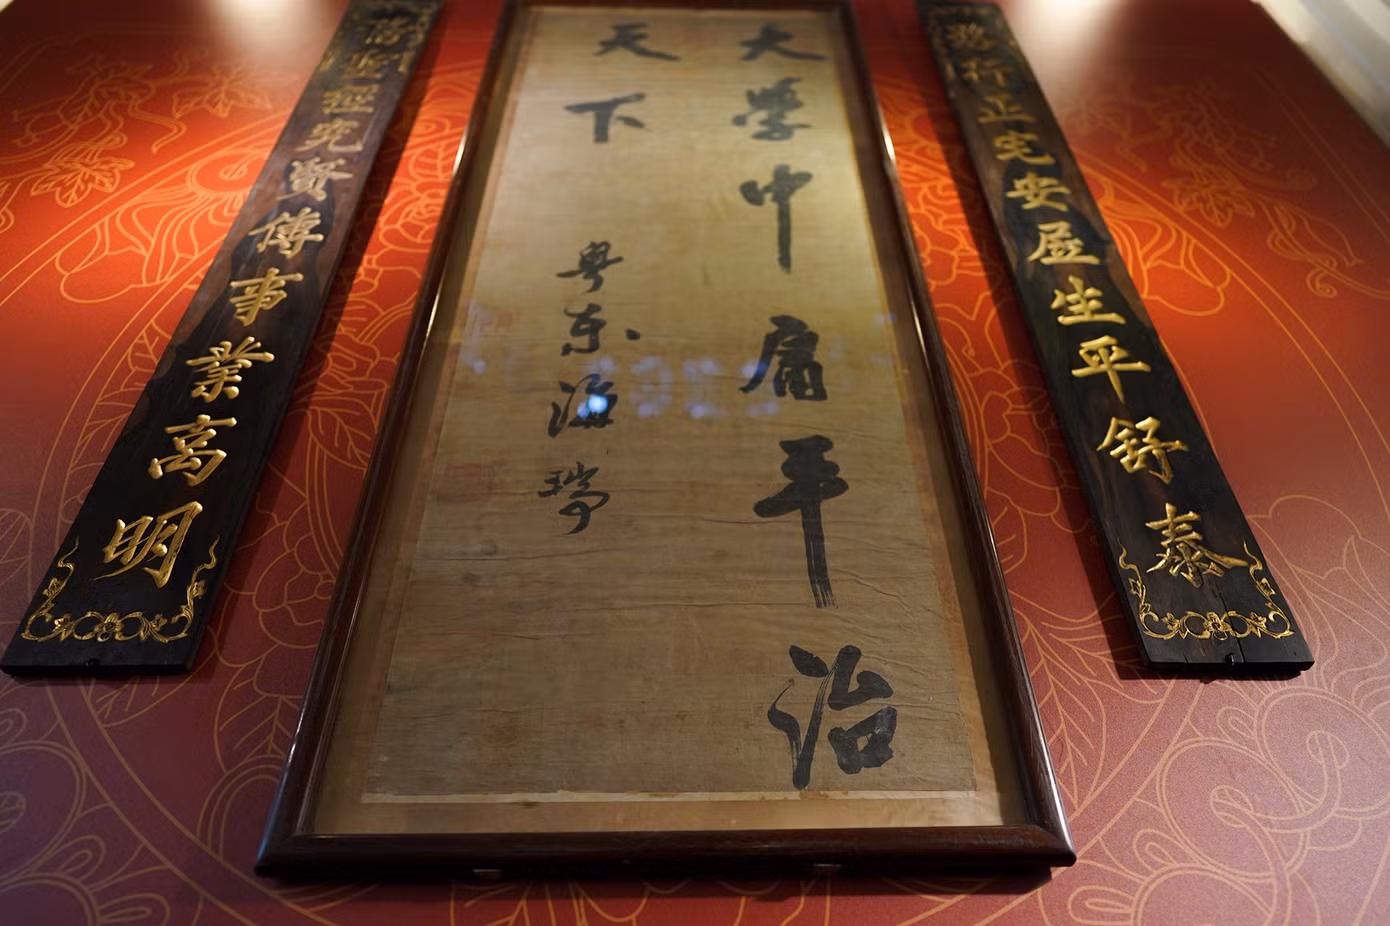 路行正宅安居生平舒泰
大学中庸平治
天下
粤东海瑞
經究賢傳事業高明